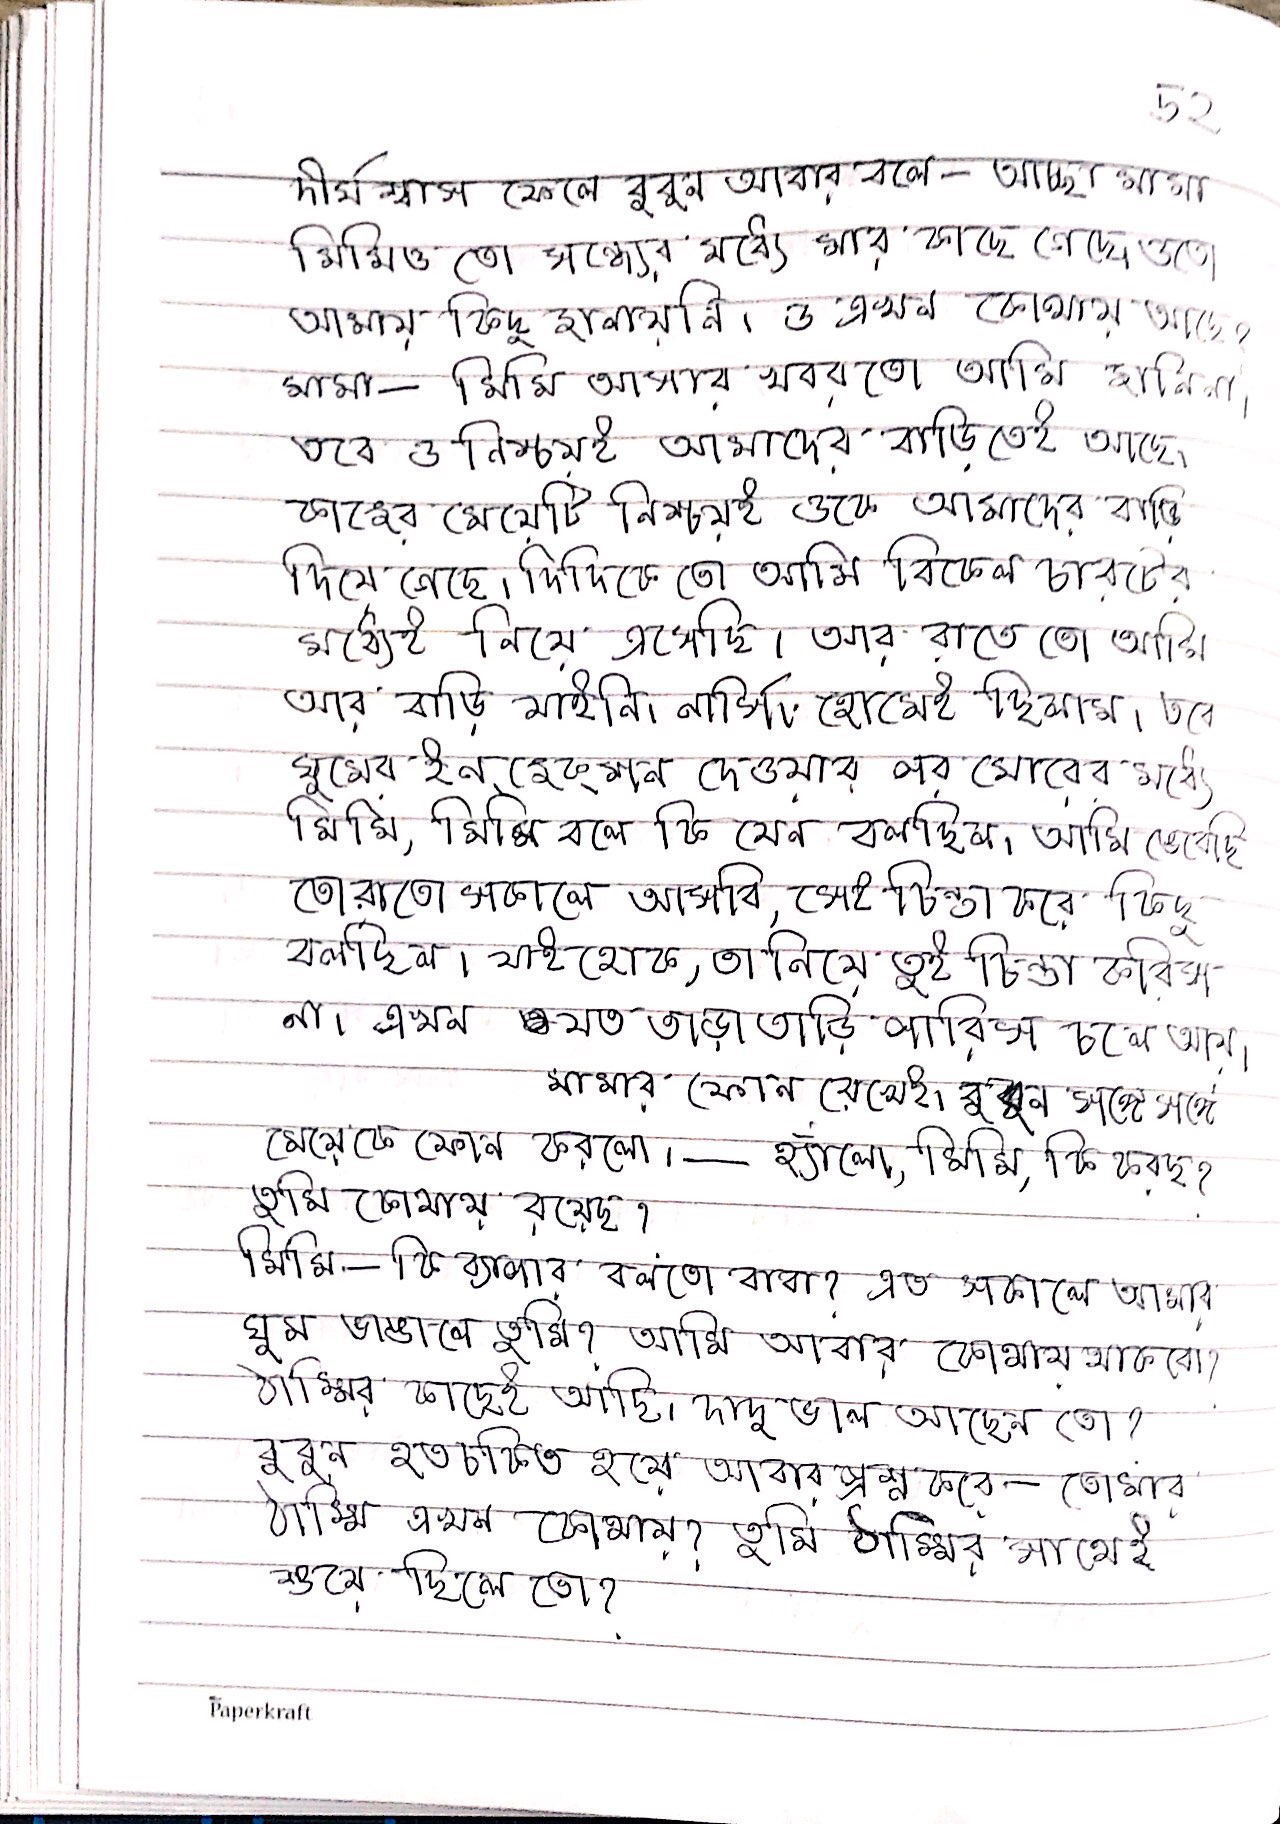 52
দীর্ঘ শ্বাস ফেলে বুবুন আবার বলে – আচ্ছা মামা
মিমিও তো সন্ধ্যের মধ্যে মার কাছে গেছে, ওতো
আমায় কিছু জানায়নি। ও এখন কোথায় আছে?
মামা – মিমি আসার খবরতো আমি জানিনা।
তবে ও নিশ্চয়ই আমাদের বাড়িতেই আছে।
কাজের মেয়েটি নিশ্চয়ই ওকে আমাদের বাড়ি
দিয়ে গেছে। দিদিকে তো আমি বিকেল চারটের
মধ্যেই নিয়ে এসেছি। আর রাতে তো আমি
আর বাড়ি যাইনি। নার্সিং হোমেই ছিলাম। তবে
ঘুমের ইন্‌জেক্‌শান দেওয়ার পর ঘোরের মধ্যে
মিমি, মিমি বলে কি যেন বলছিল। আমি ভেবেছি
তোরাতো সকালে আসবি, সেই চিন্তা করে কিছু
বলছিল। যাই হোক, তা নিয়ে তুই চিন্তা করিস
না। এখন যত তাড়াতাড়ি পারিস চলে আয়।
মামার ফোন রেখেই। বুবুন সঙ্গে সঙ্গে
মেয়েকে ফোন করলো। — হ্যাঁলো, মিমি, কি করছ?
তুমি কোথায় রয়েছ?
মিমি – কি ব্যাপার বলতো বাবা? এত সকালে আমার
ঘুম ভাঙালে তুমি? আমি আবার কোথায় থাকবো?
ঠাম্মির কাছেই আছি। দাদু ভাল আছেন তো?
বুবুন হতচকিত হয়ে আবার প্রশ্ন করে – তোমার
ঠাম্মি এখন কোথায়? তুমি ঠাম্মির সাথেই
শুয়ে ছিলে তো?
Paperkraft